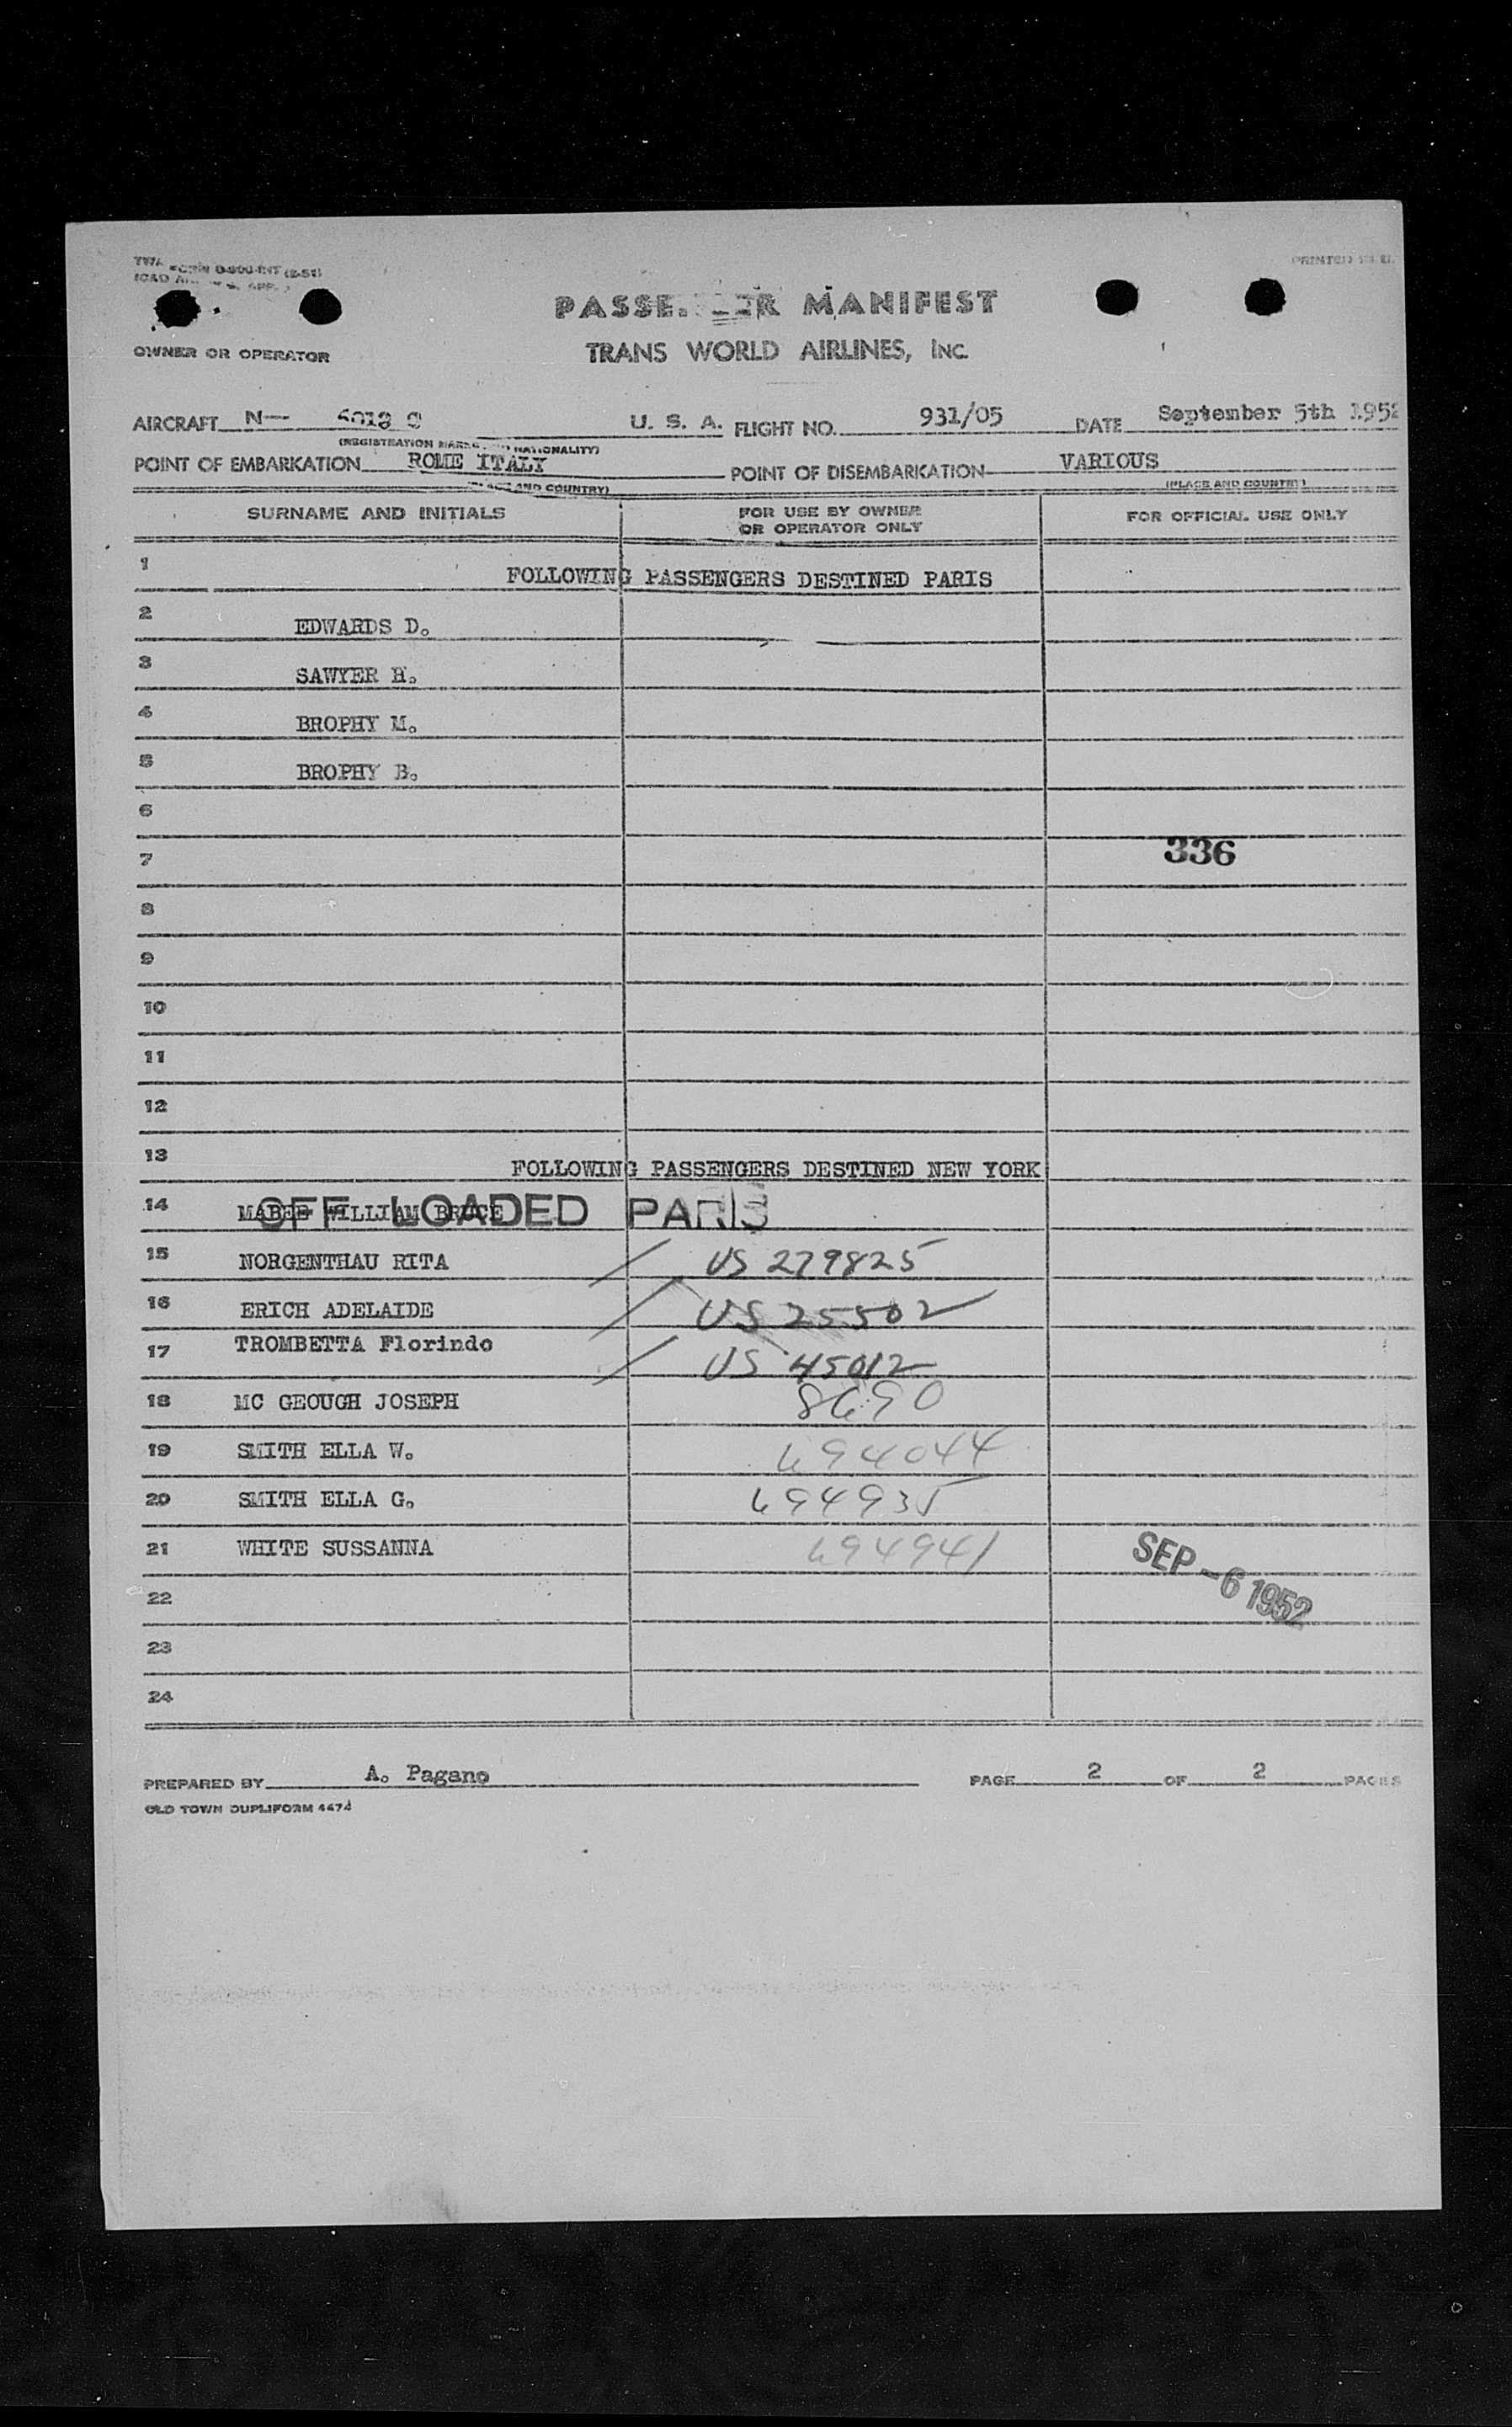 PRINTED IN U.
PASSE ER MANIFEST
OWNER OR OPERATOR
TRANS WORLD AIRLINES, INC.
AIRCRAFT N— U. S. A. FLIGHT NO. 931/05 DATE September 5th 1952
(REGISTRATION MARKS AND NATIONALITY)
POINT OF EMBARKATION ROME ITALY POINT OF DISEMBARKATION VARIOUS
(PLACE AND COUNTRY) (PLACE AND COUNTRY)
SURNAME AND INITIALS FOR USE BY OWNER OR OPERATOR ONLY FOR OFFICIAL USE ONLY
1 FOLLOWING PASSENGERS DESTINED PARIS
2 EDWARDS D.
3 SAWYER H.
4 BROPHY M.
5 BROPHY B.
6
7 336
8
9
10
11
12
13 FOLLOWING PASSENGERS DESTINED NEW YORK
14 WILLIAM BRUCE OFF LOADED PARIS
15 NORGENTHAU RITA US 279825
16 ERICH ADELAIDE US 25502
17 TROMBETTA Florindo US 45012
18 MC GEOUGH JOSEPH 8690
19 SMITH ELLA W. 694044
20 SMITH ELLA G. 694935
21 WHITE SUSSANNA 694941
SEP -6 1952
22
23
24
PREPARED BY A. Pagano PAGE 2 OF 2 PAGES
OLD TOWN DUPLIFORM